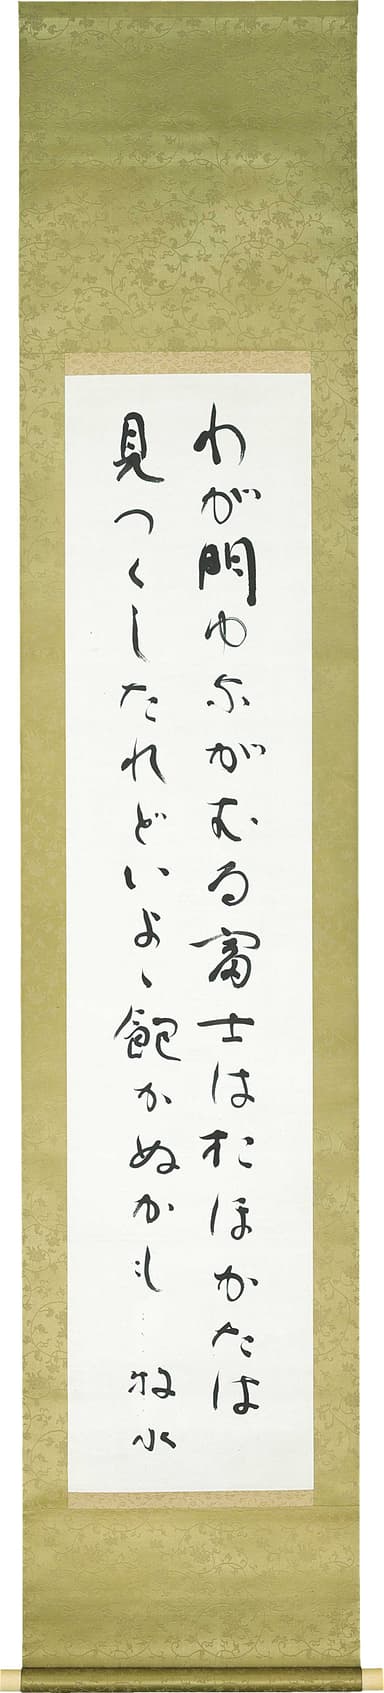 わが門ゆながむる富士はおほかたは
見つくしたれどいよゝ飽かぬかも
牧水